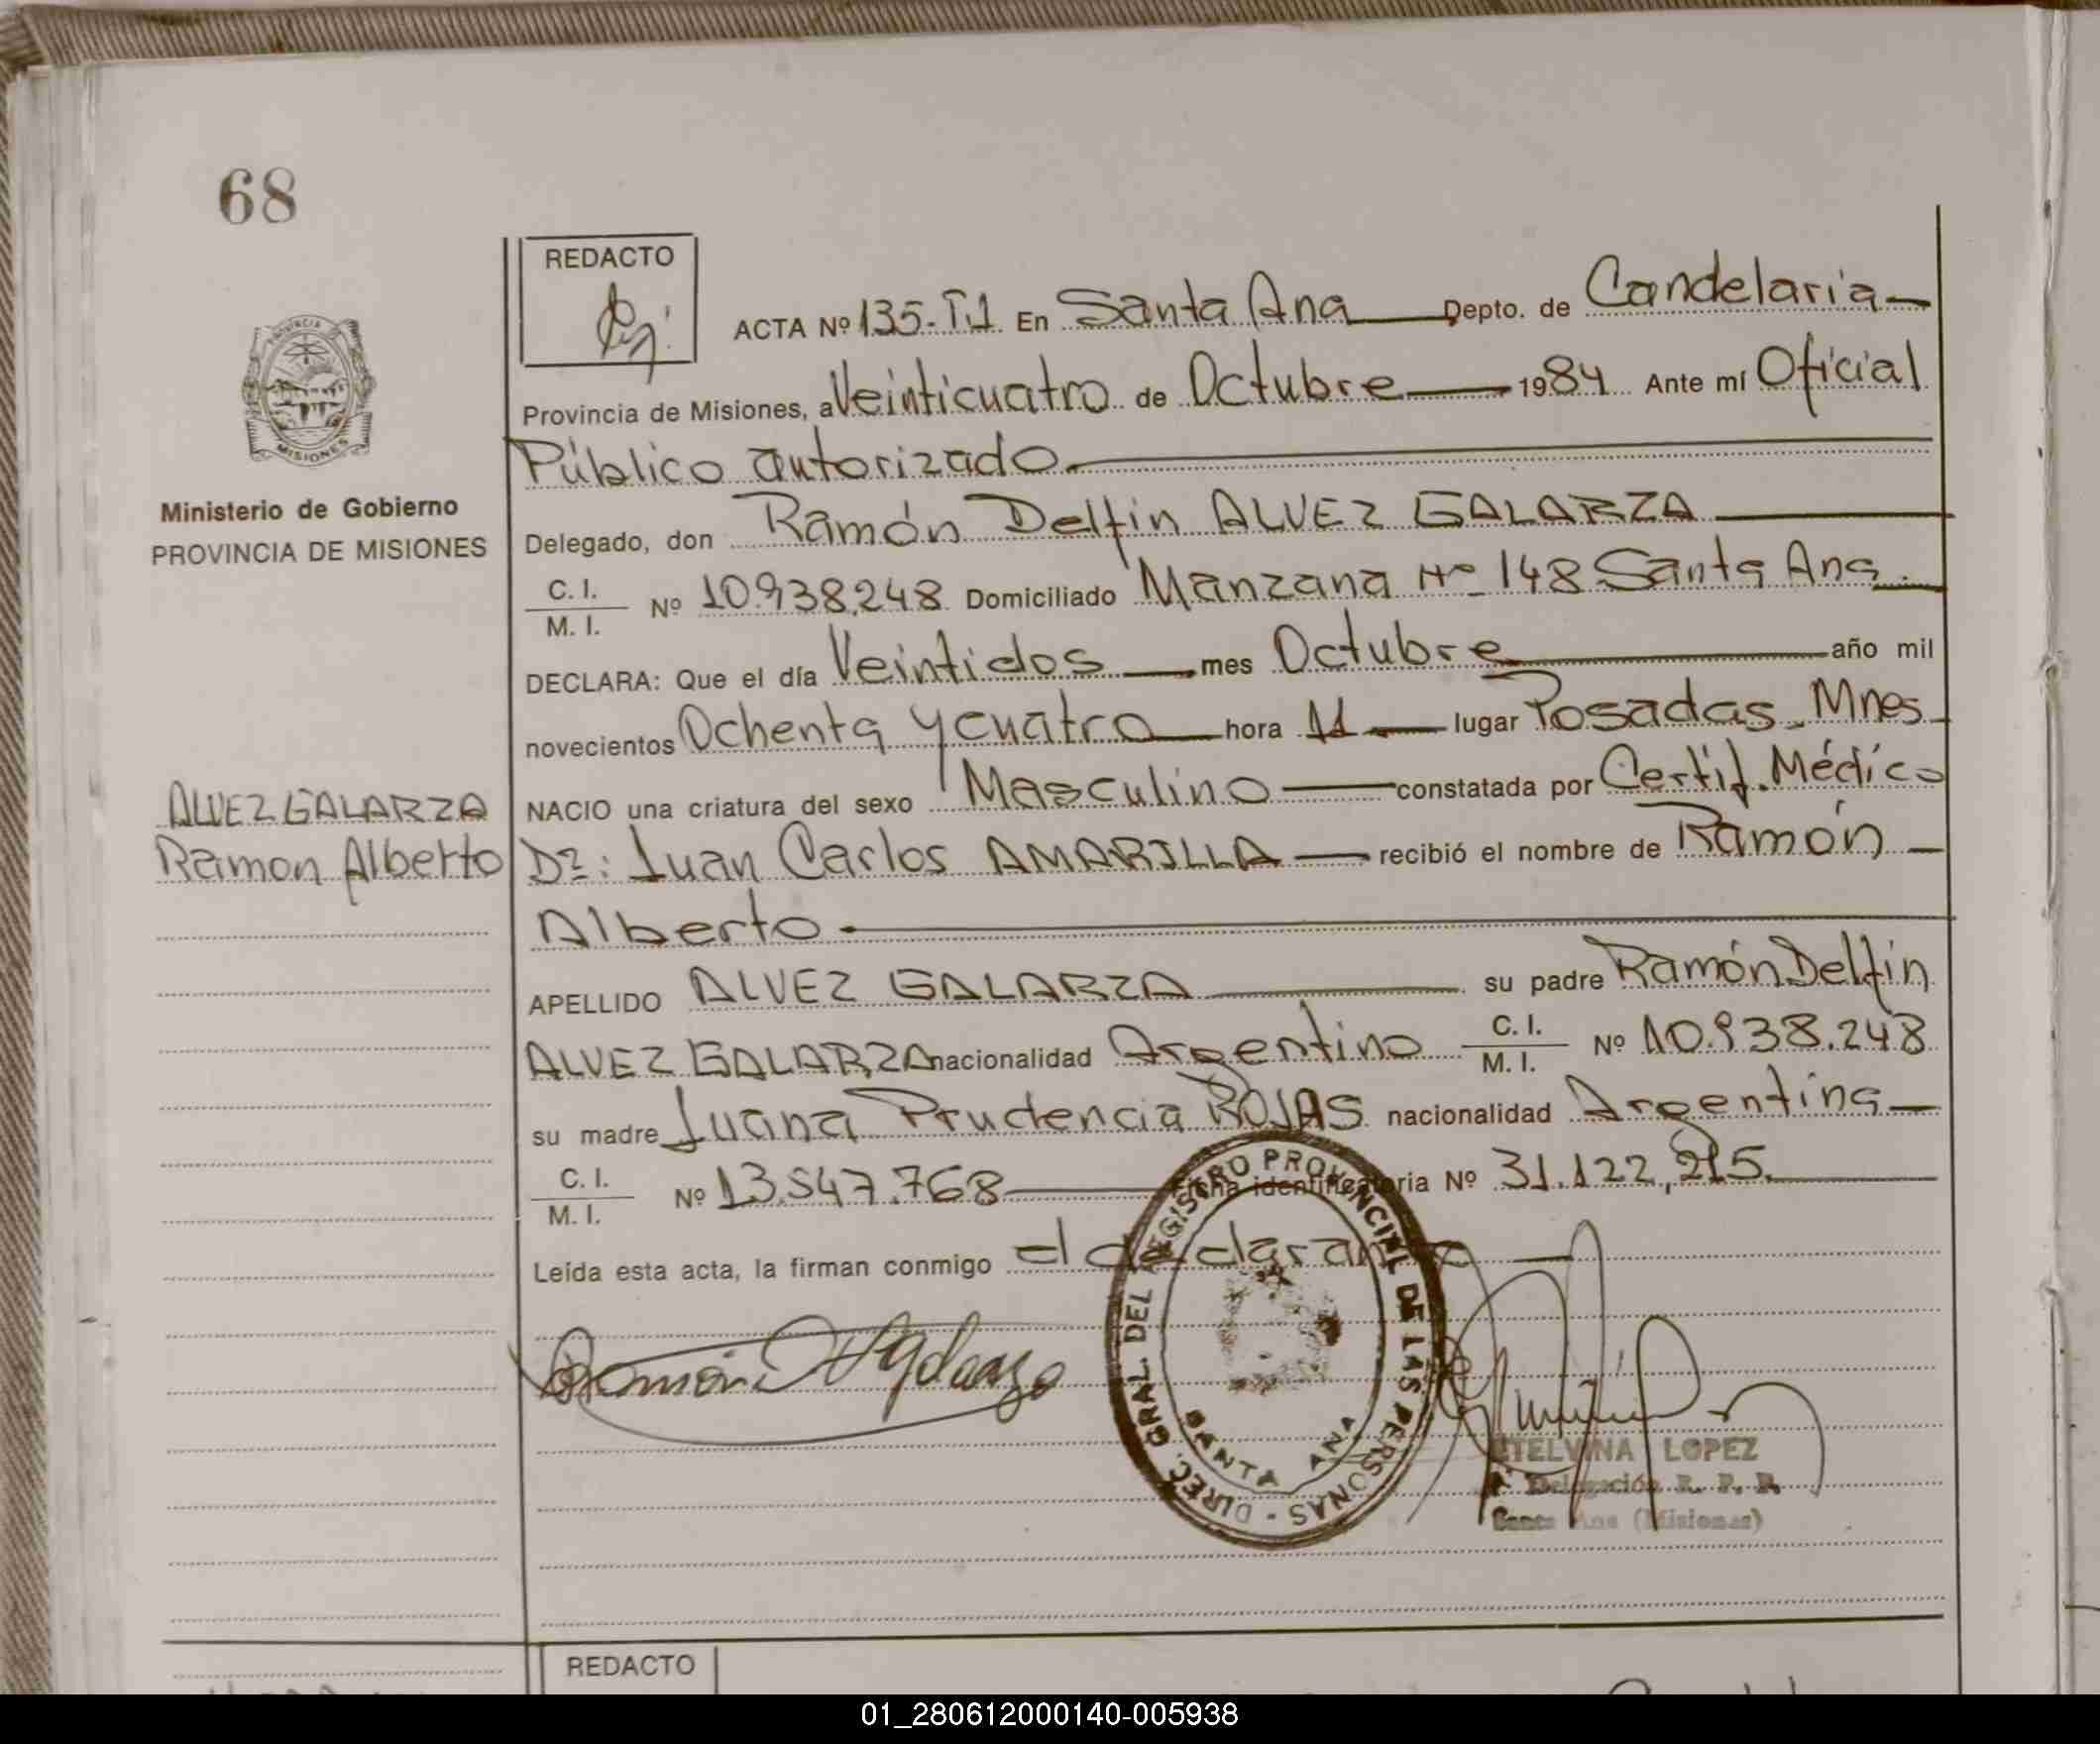 68
REDACTO
ACTA Nº 135-T.1 En Santa Ana Depto. de Candelaria
Provincia de Misiones, a Veinticuatro de Octubre 1984 Ante mí Oficial
Público autorizado.
Delegado, don Ramón Delfin ALVEZ GALARZA
C. I.
M. I. Nº 10.938.248 Domiciliado Manzana Nº 148 Santa Ana.
DECLARA: Que el día Veintidos mes Octubre año mil
novecientos Ochenta y cuatro hora 11 lugar Posadas Mnes
NACIO una criatura del sexo Masculino constatada por Certif. Médico
Dr: Juan Carlos AMARILLA recibió el nombre de Ramón
Alberto
APELLIDO ALVEZ GALARZA su padre Ramón Delfin
ALVEZ GALARZA nacionalidad Argentino C. I. M. I. Nº 10.938.248
su madre Juana Prudencia ROJAS nacionalidad Argentina
C. I.
M. I. Nº 13.547.768 Ficha identificatoria Nº 31.122.215.
Leída esta acta, la firman conmigo el declarante
PROVINCIA
MISIONES
Ministerio de Gobierno
PROVINCIA DE MISIONES
ALVEZ GALARZA
Ramon Alberto
DIREC. GRAL. DEL REGISTRO PROVINCIAL DE LAS PERSONAS -
SANTA ANA
ETELVINA LOPEZ
Delegación R. P. P.
Santa Ana (Misiones)
REDACTO
01_280612000140-005938